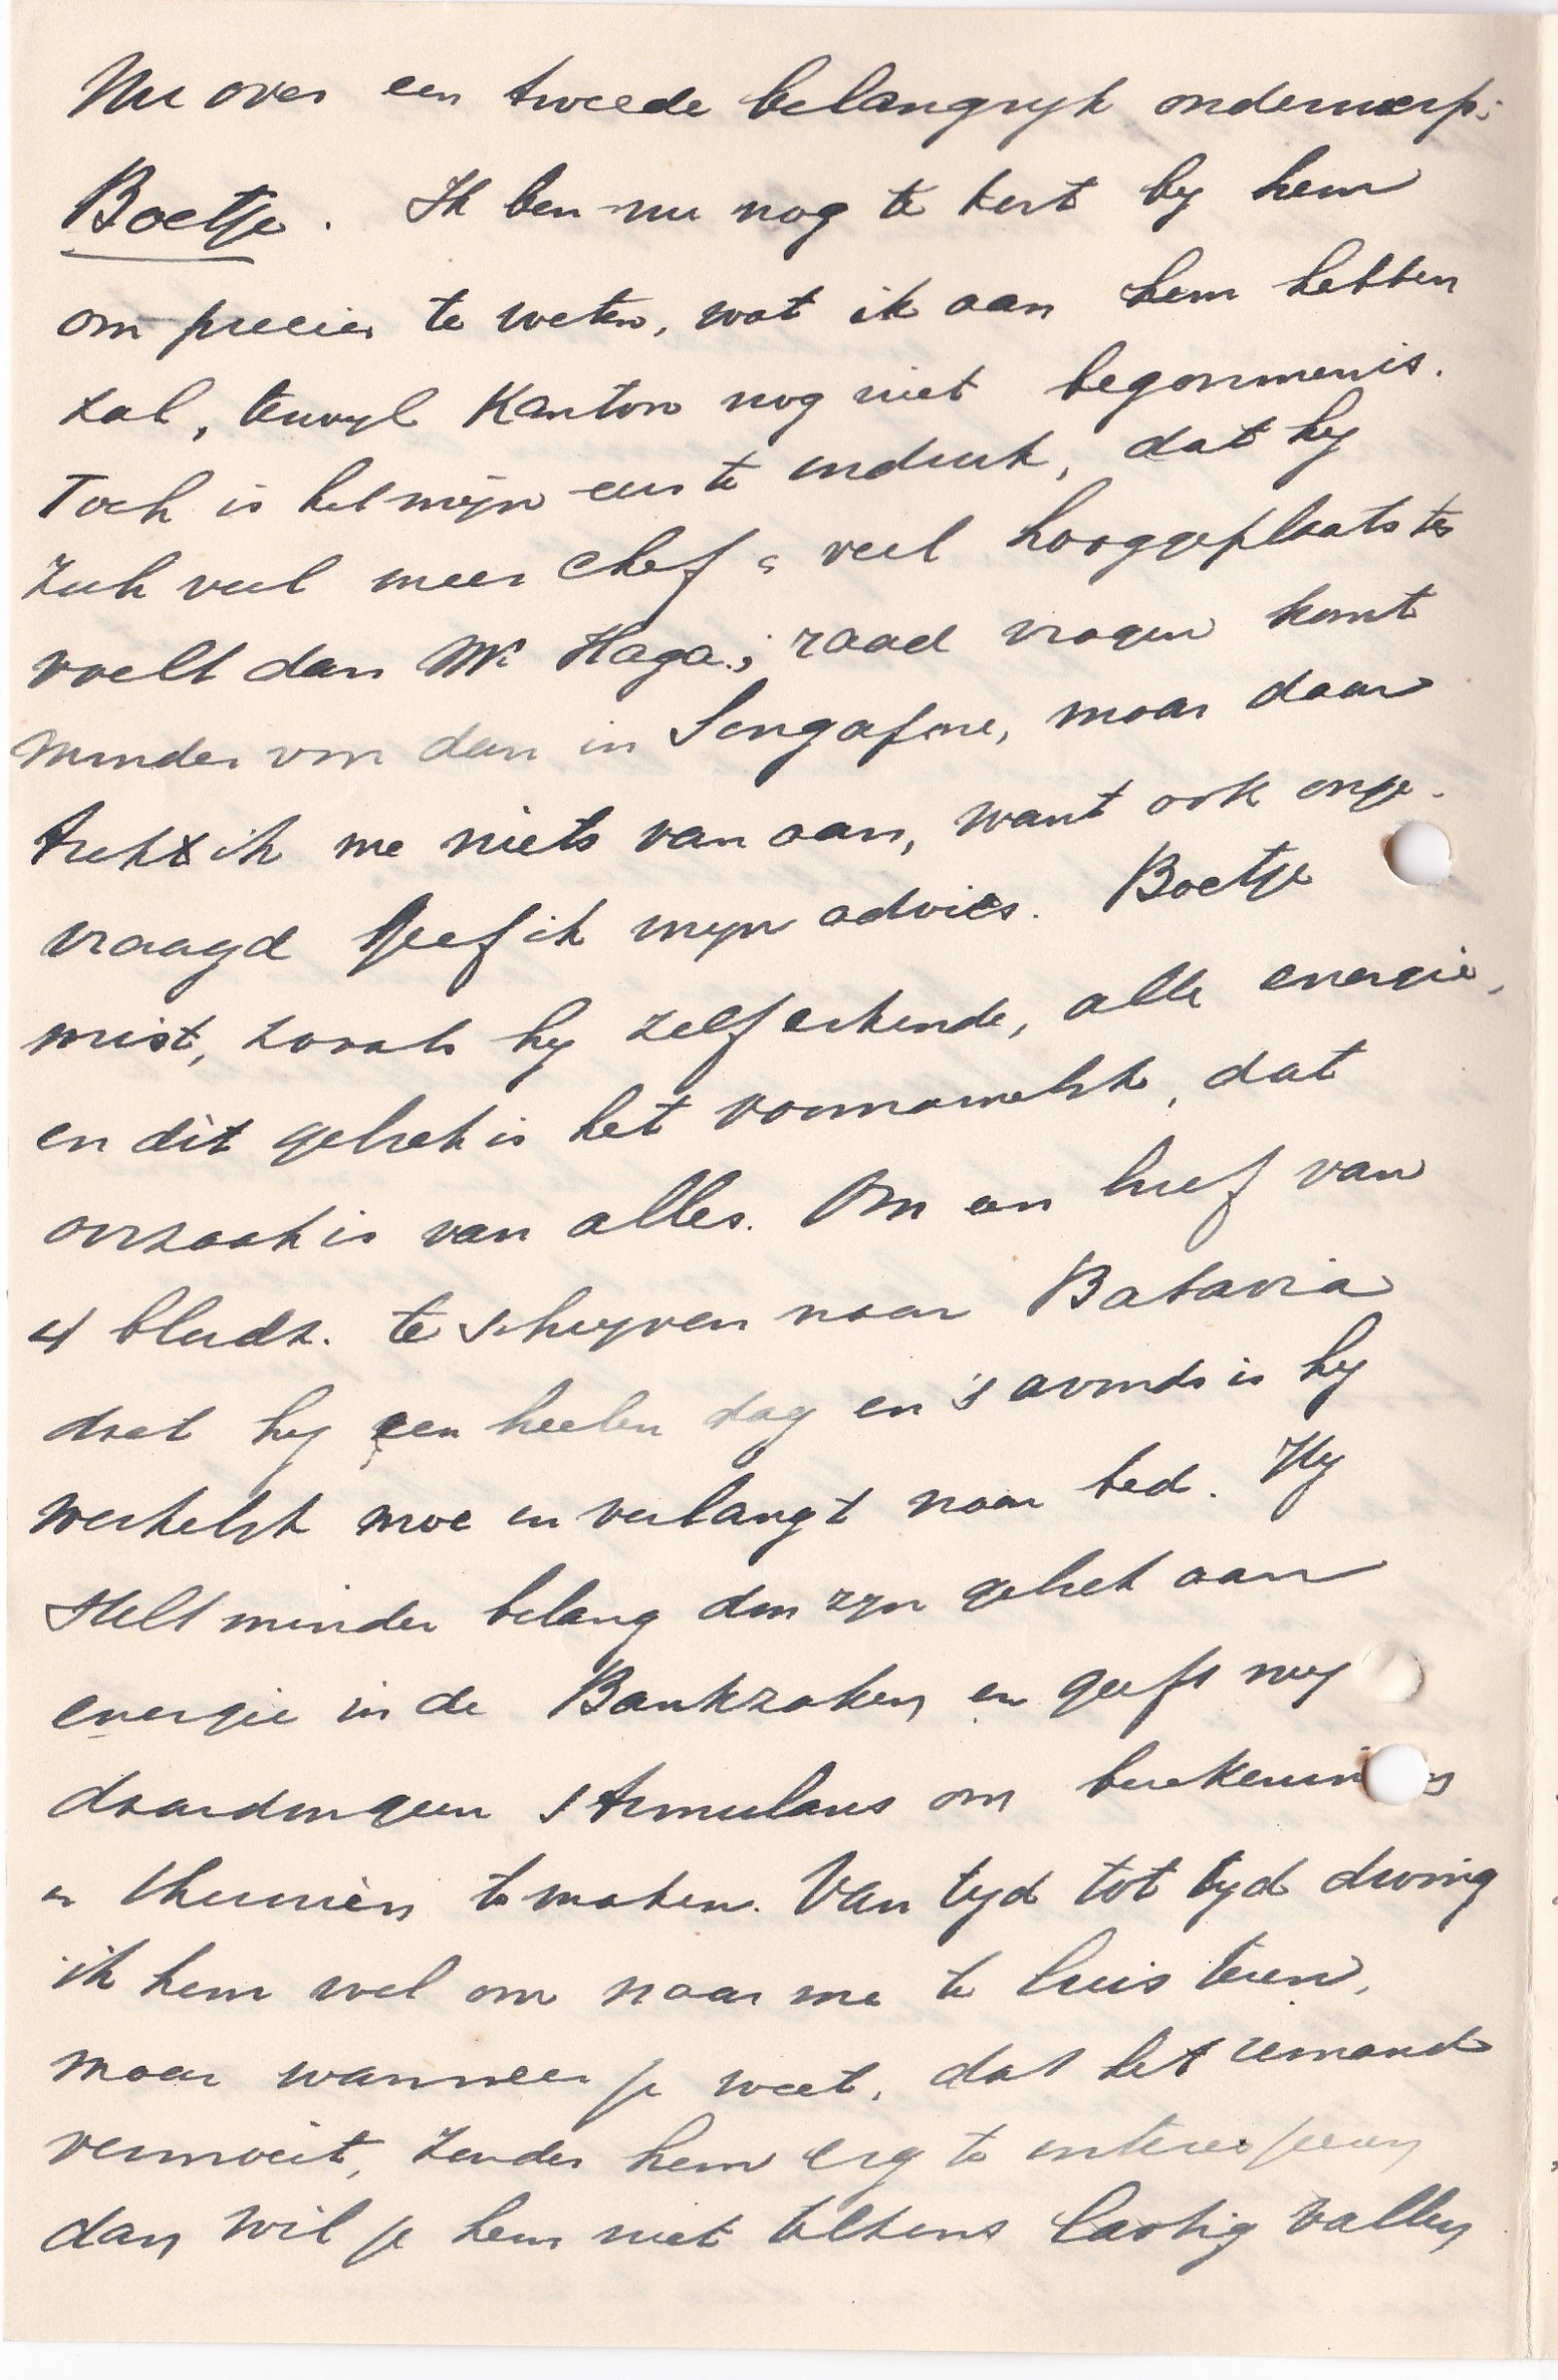 Nu over een tweede belangryk onderwerp:
Boetje. Ik ben nu nog te kort by hem
om precies te weten, wat ik aan hem hebben
zal, terwyl Kanton nog niet begonnen is.
Toch is het mijn eerste indruk, dat hy
zich veel meer chef & veel hooggeplaatster
voelt dan Mr Haga; raad vragen komt
minder voor dan in Singapore, maar daar
trek ik me niets van aan, want ook onge-
vraagd geef ik myn advies. Boetje
mist, zooals hy zelf erkende, alle energie,
en dit gebrek is het voornamelyk, dat
oorzaak is van alles. Om een brief van
4 bladz. te schryven naar Batavia
doet hy een heelen dag en 's avonds is hy
werkelyk moe en verlangt naar bed. Hy
stelt minder belang door zyn gebrek aan
energie in de Bankzaken en geeft my
daardoor geen stimulans om berekenings
en theorieën te maken. Van tyd tot tyd dwing
ik hem wel om naar me te luisteren,
maar wanneer je weet, dat het iemand
vermoeit, zonder hem erg te interesseeren
dan wil je hem niet telkens lastig vallen